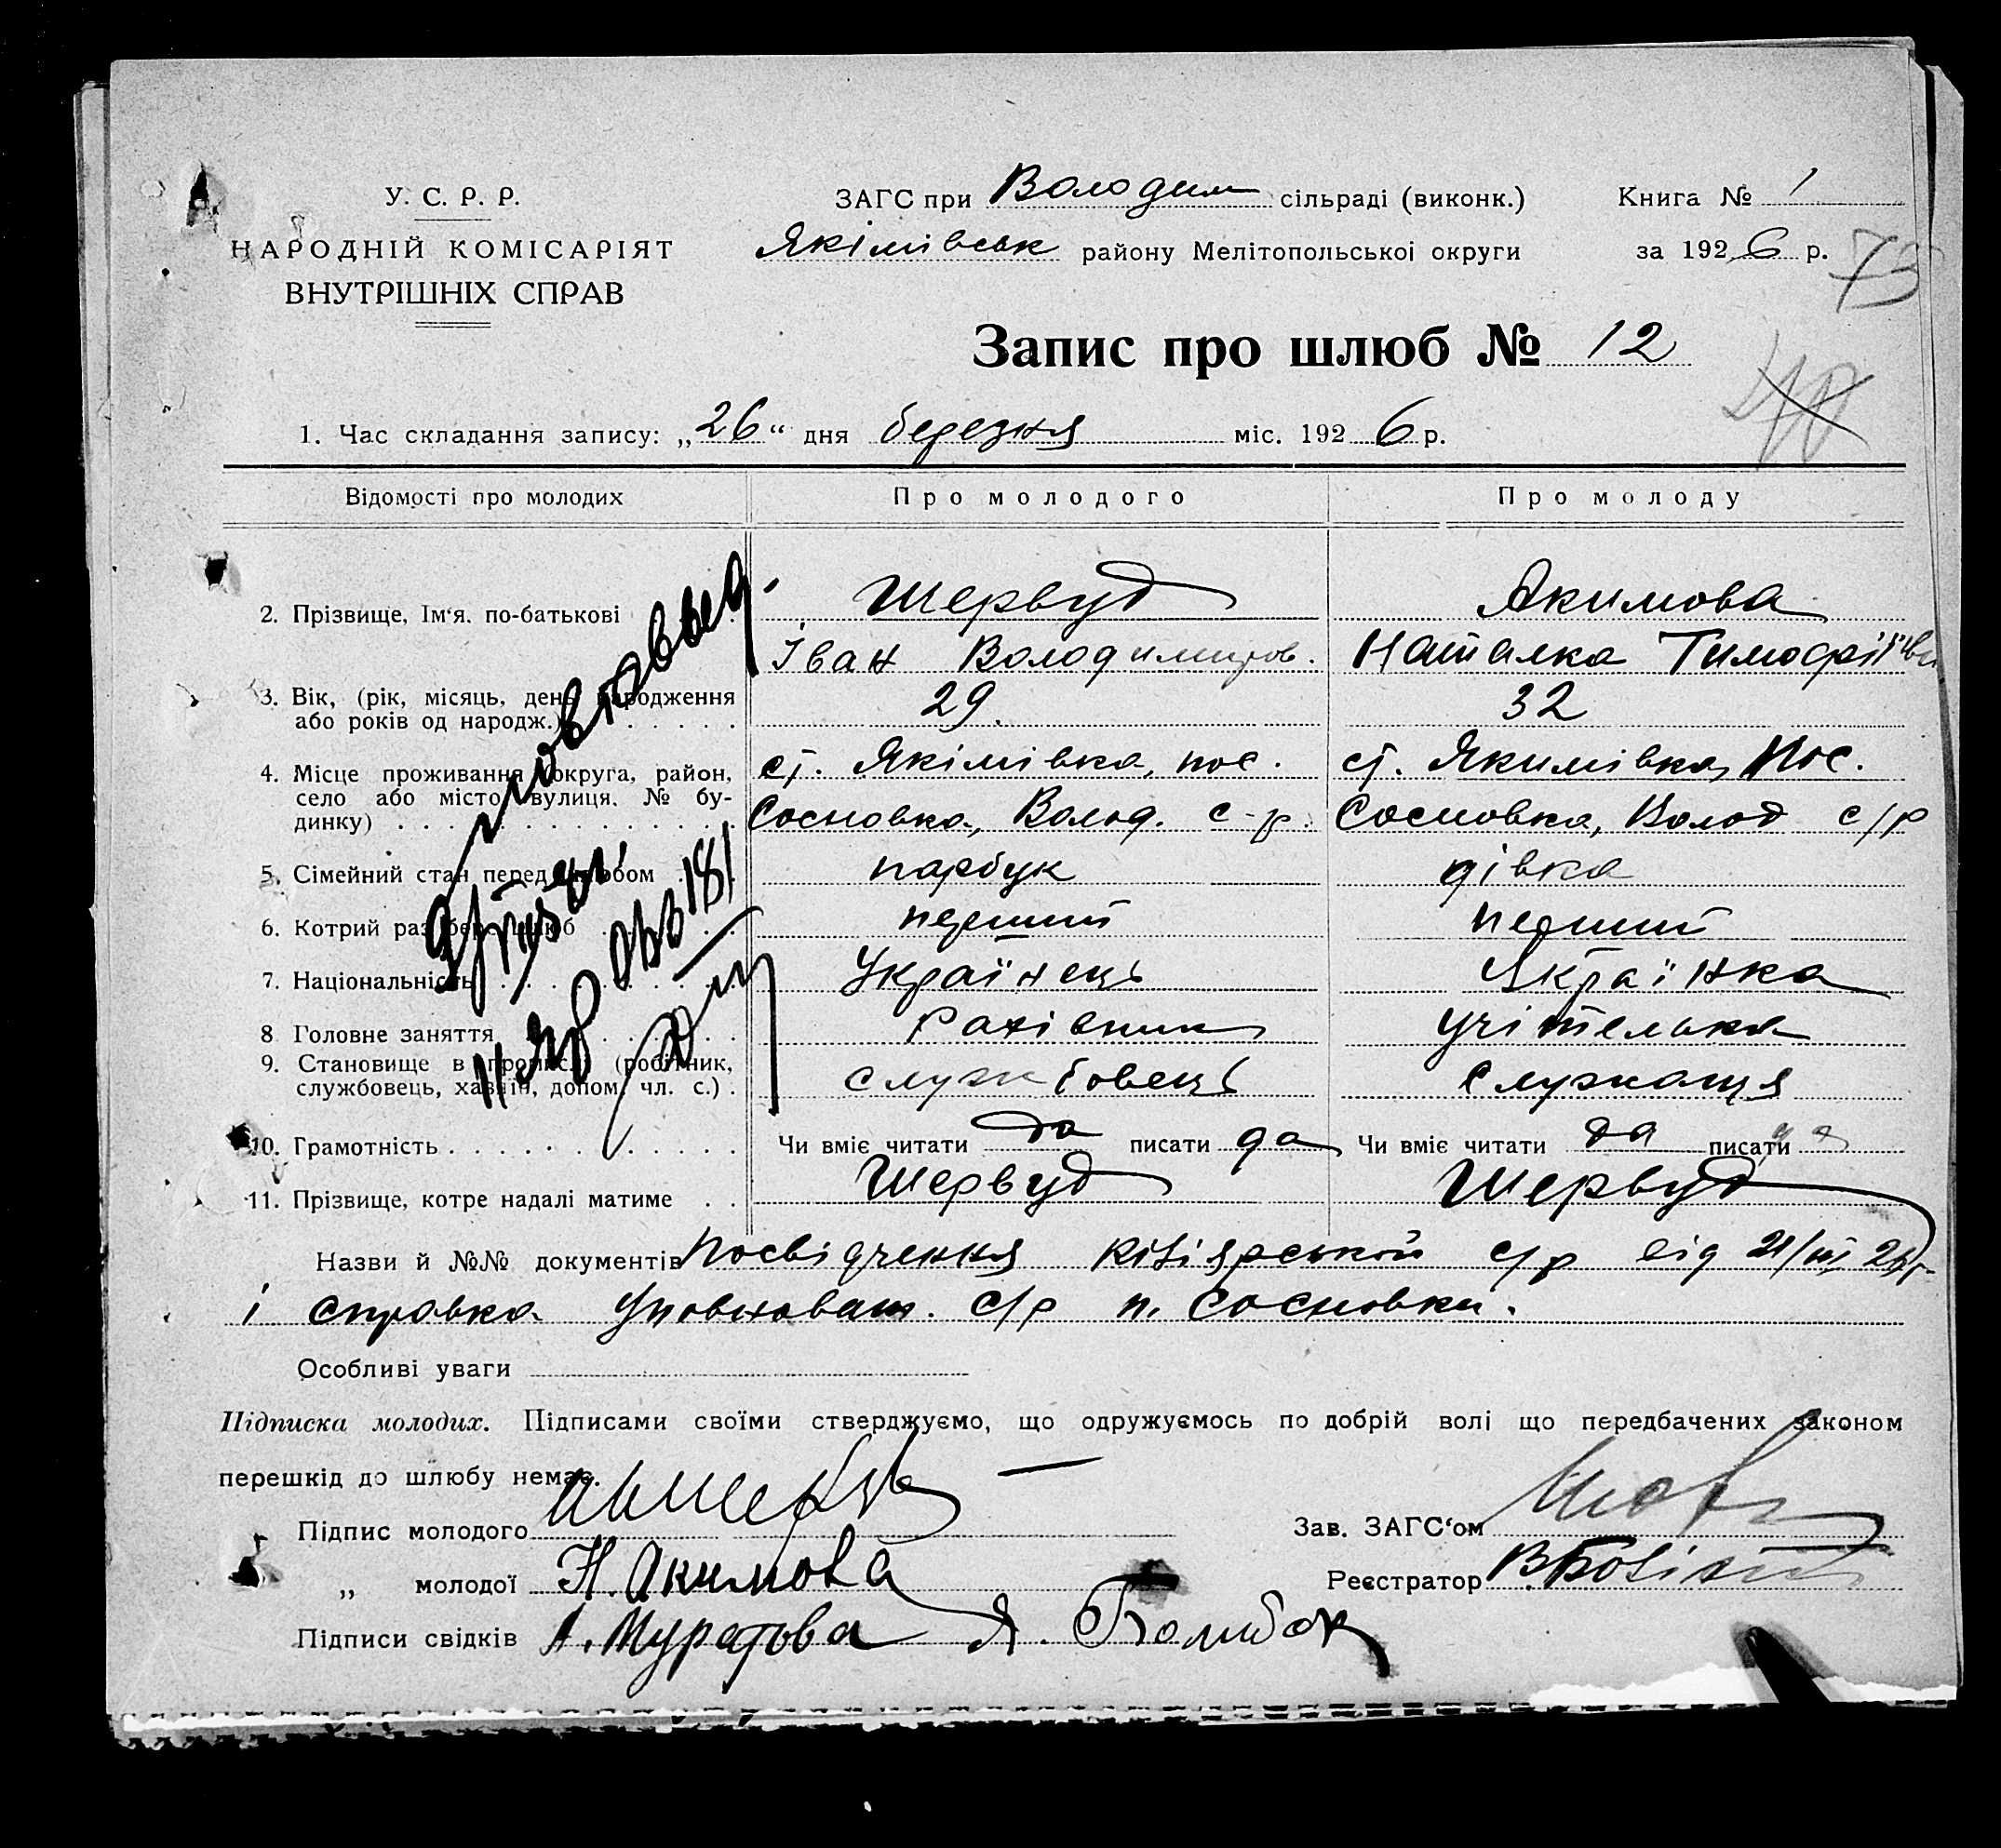 У. С. Р. Р.
НАРОДНІЙ КОМІСАРІЯТ
ВНУТРІШНІХ СПРАВ
ЗАГС при Володим сільраді (виконк.) Книга № 1
Якімівськ району Мелітопольської округи за 1926 р.
73
Запис про шлюб № 12
40
1. Час складання запису: „26“ дня березня міс. 1926 р.
Відомості про молодих Про молодого Про молоду
2. Прізвище, Ім'я. по-батькові Шервуд Акимова
Іван Володимиров. Наталка Тимофіївн
3. Вік, (рік, місяць, день народження або років од народж.) 29. 32
4. Місце проживання (округа, район, ст. Якімівка, пос. ст. Якимівка, Пос.
село або місто, вулиця. № бу- Сосновка, Волод. с-р. Сосновка, Волод с/р
динку)
5. Сімейний стан перед шлюбом парубук дівка
6. Котрий раз бере шлюб перший перший
7. Національність Українець Українка
8 Головне заняття Рахівник Учітелька
9. Становище в промисл. (робітник, службовець, хазяїн, допом. чл. с.) службовець служаща
10. Грамотність Чи вміє читати да писати да Чи вміє читати да писати да
11. Прізвище, котре надалі матиме Шервуд Шервуд
Назви й №№ документів Посвідчення Кізіярської с/р від 21/III
і справка Уповноваж. с/р п. Сосновки.
Особливі уваги
Підписка молодих. Підписами своїми стверджуємо, що одружуємось по добрій волі що передбачених законом
перешкід до шлюбу немає.
Підпис молодого Зав. ЗАГС'ом
„ молодої Н. Акимова Реєстратор
Підписи свідків А. Муратова Я.